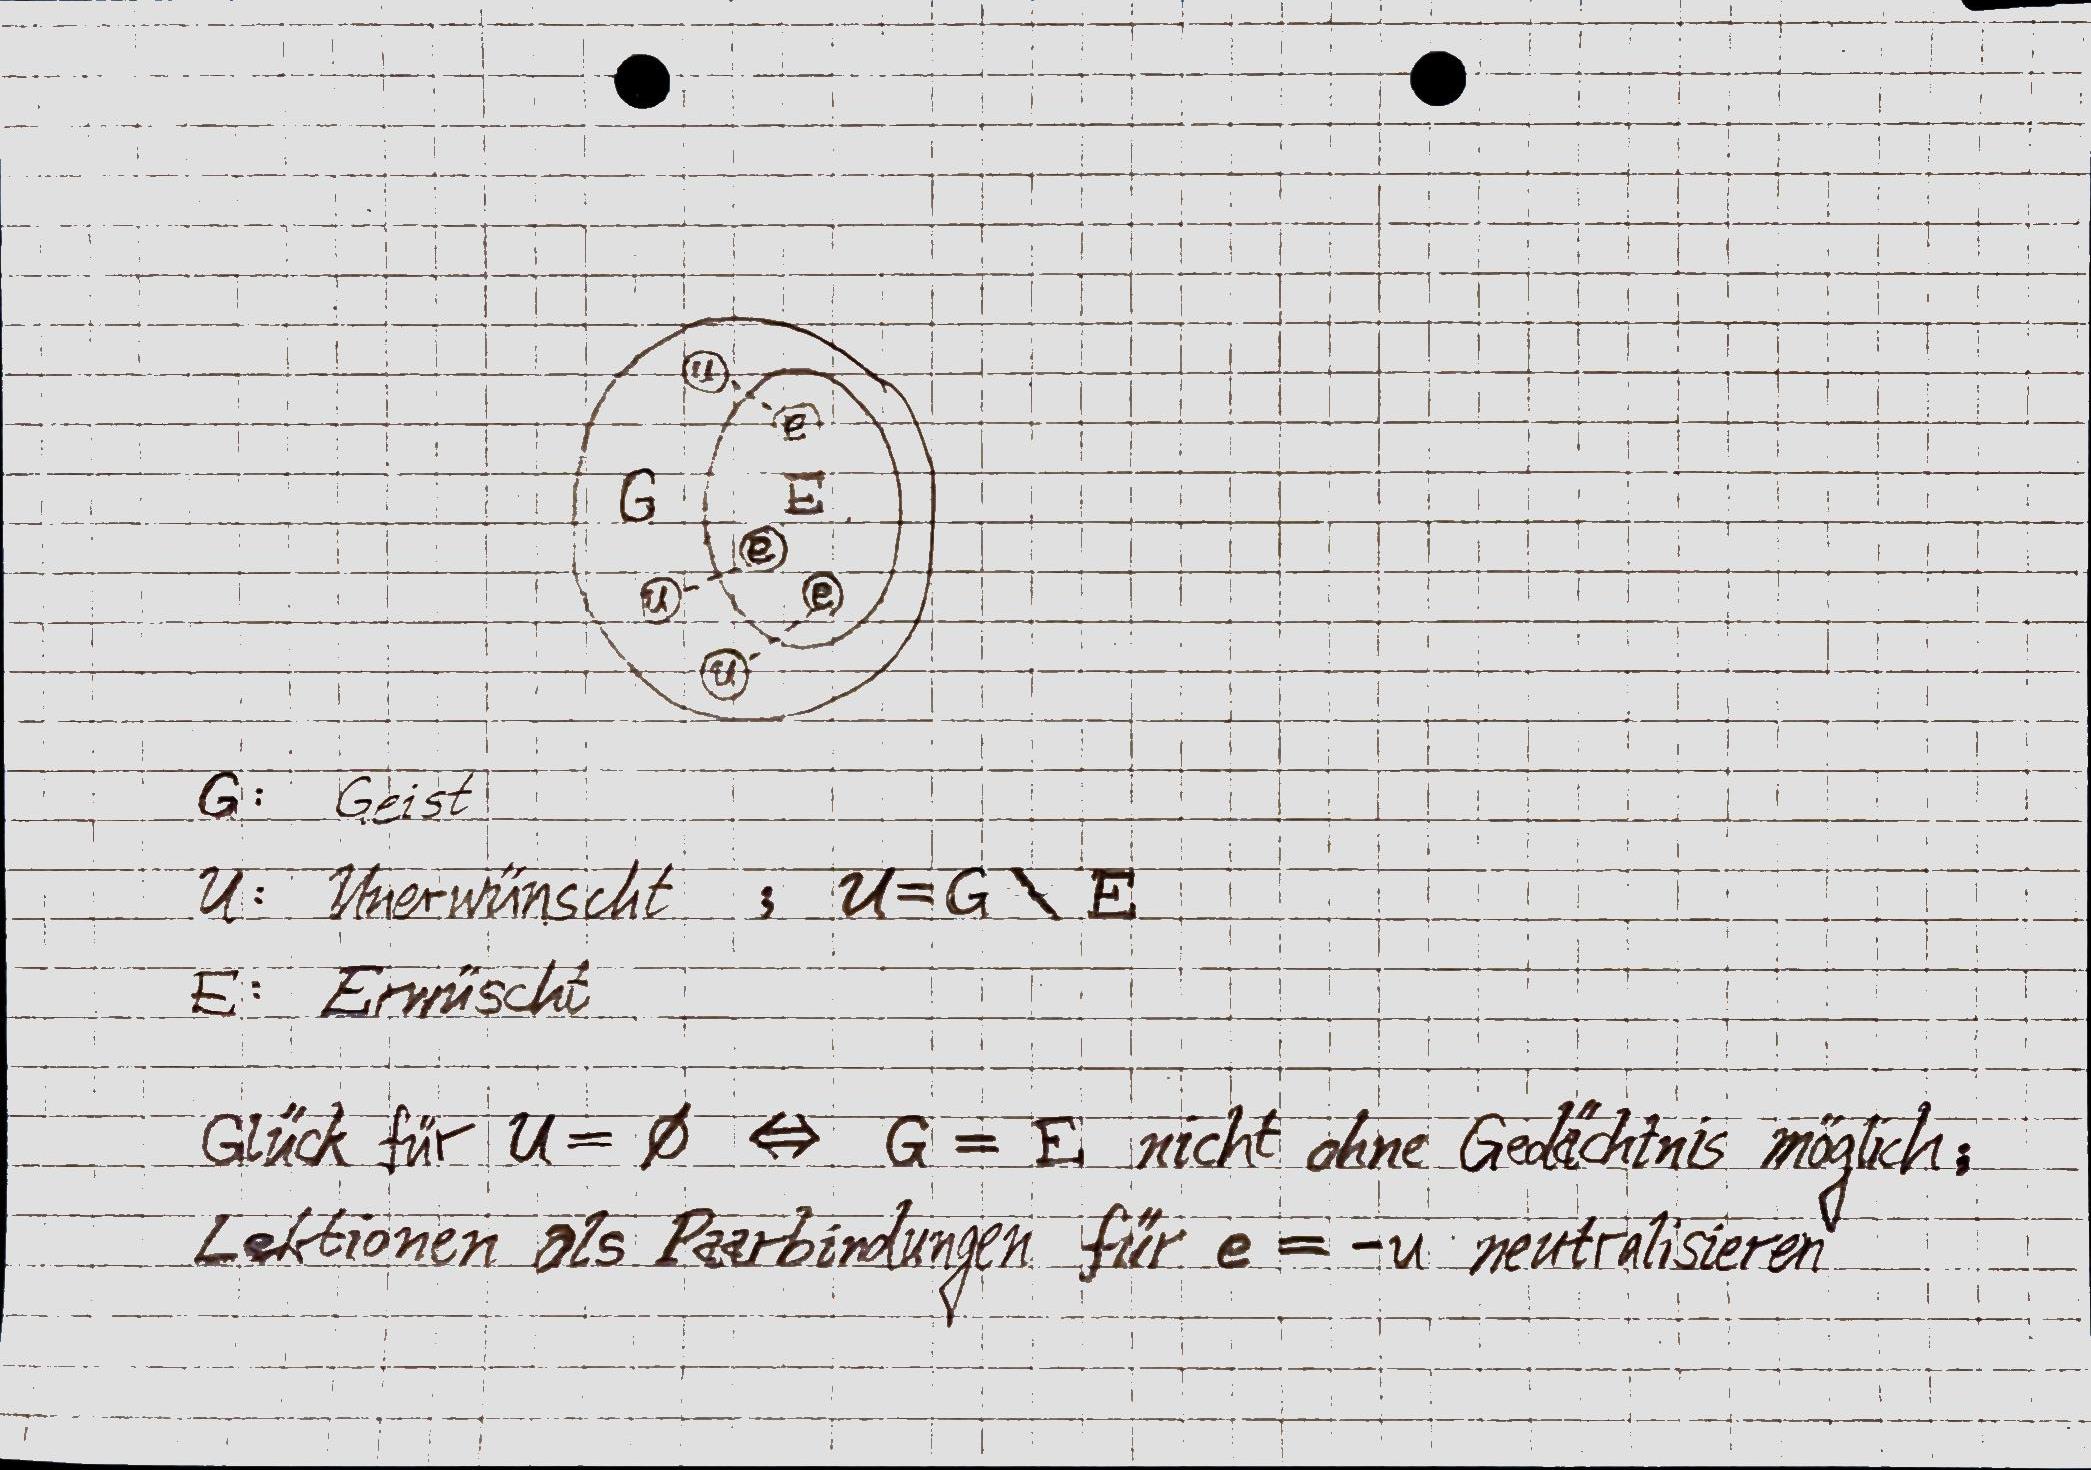 u
e
G E
e
u e
u
G: Geist
U: Unerwünscht ; U = G \ E
E: Erwüscht
Glück für U = Ø ⇔ G = E nicht ohne Gedächtnis möglich;
Lektionen als Paarbindungen für e = -u neutralisieren